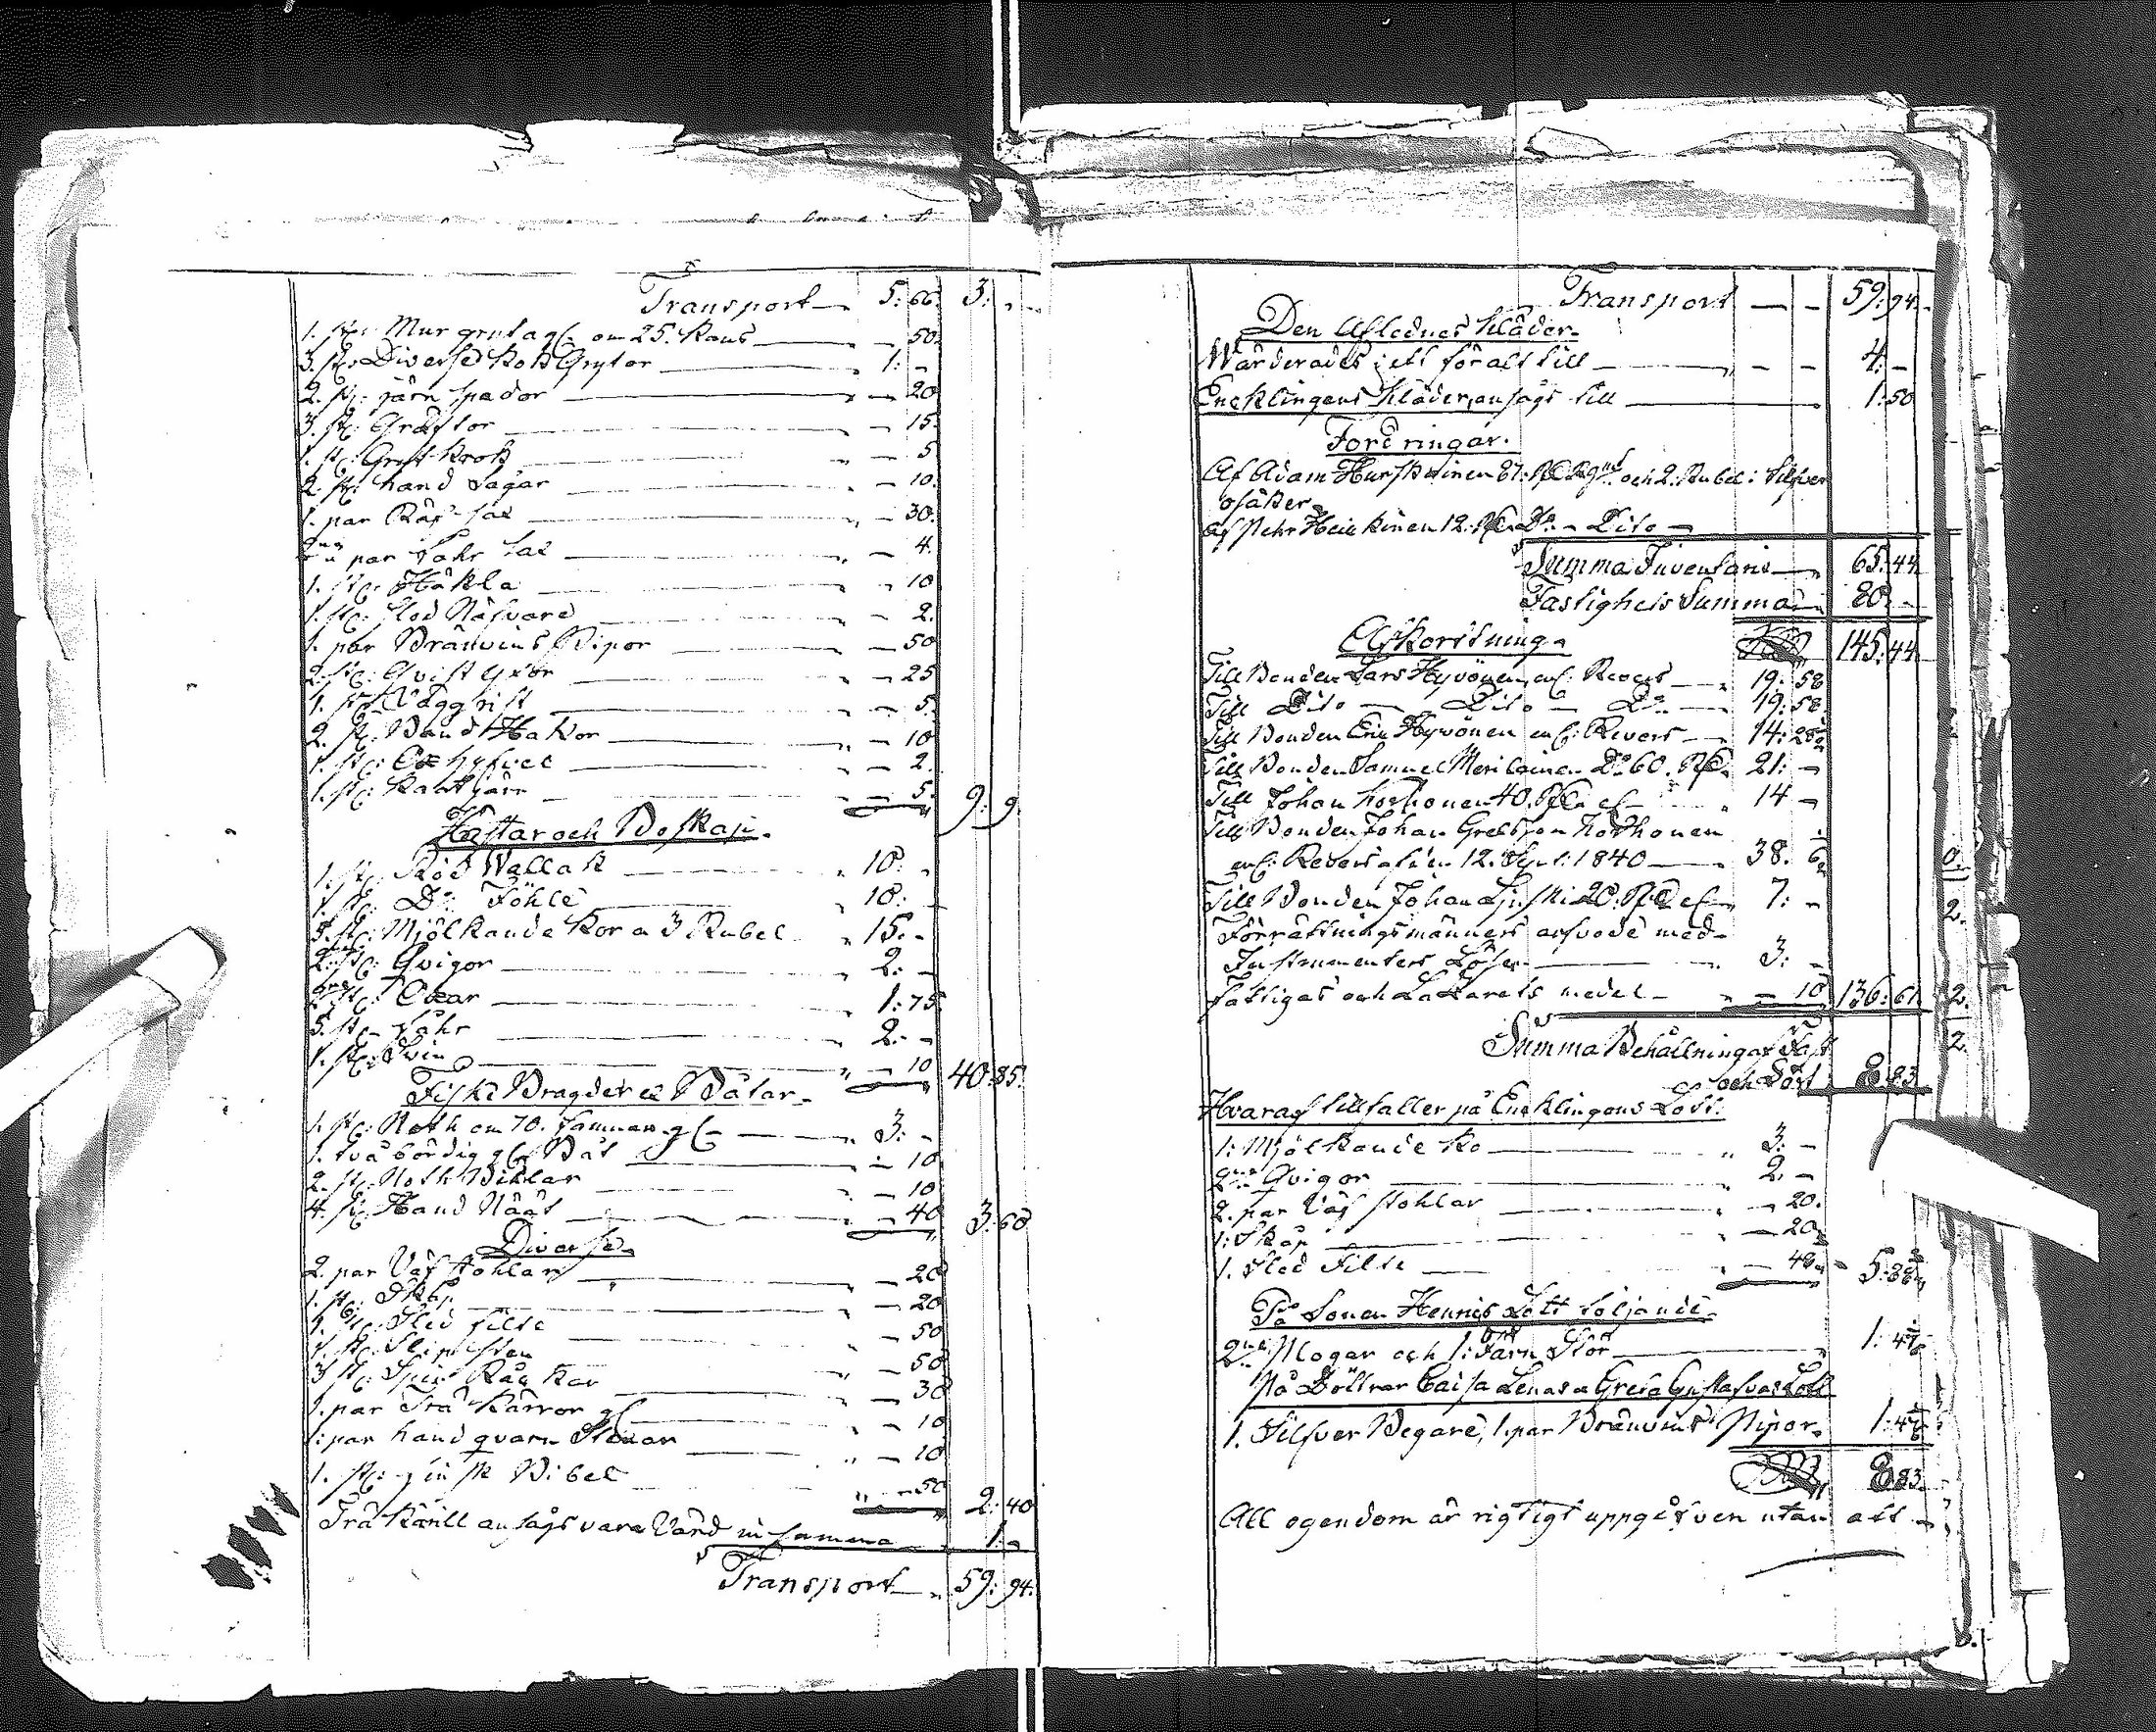 Transport 5: 66. 3: -
1. st: Mur gryta gl: om 25. Kans — 50.
3. st: Diverse Kok Grytor 1: -
2. st: järn spador — 20
3. st: Gräftor — 15.
1. st: Gryt Krok — 5
2. st: hand Sågar — 10.
1. par Räf sax — 30.
par Fåhr Sax — 4.
1. st: Häkla — 10
1. st: Stod Näfvare — 2.
1. par Bränvins Pipor — 50
2. st: Qvist Yxor — 25
1. st: — 5.
2. st: Band Hakor — 10
1. st: Oxhyfvel — 2.
1. st: — 5. 9: 9
Hästar och Boskap.
1. st: Röd Wallak 10: -
1. st: Do: Föhle 10: -
5. st: Mjölkande Kor a 3 Rubel 15. -
2. st: Qvigor 2: -
st: Oxar 1: 75.
5. st: Fåhr 2. -
1. st: Svin — 10 40: 85.
Fiske Bragder och Båtar.
1. st: Noth om 70. famnar gl: 3: -
1. två bördig gl: Båt — 10
2. st: Noth — 10
4. st: Hand Näät — 40 3: 60
Diverse
2. par Väf stohlar — 20
1. st: Skåp — 20
1. st: Sled filte — 50
1. st: Slipsten — 50
3 st: Spin Råckar — 30
1. par Trä Kärror gl: — 10
1: par hand qvarn Stenar — 10
1. st: finsk Bibel — 50 2: 40
Trä Käril ansågs vara Värd in summa 1: -
Transport 59: 94.
Transport — - 59: 94.
Den Aflednes Kläder
Wärderades i ett för alt till — - 4: -
Encklingens Kläder, ansågs till 1: 50
Fordringar.
Af Adam Hurskainen 87: och 2. Rubel i Silfver
osäker
Af Pehr Heickinen 12. Do — Dito —
Summa Inventarii 65: 44.
Fastighets Summa 80. -
Afkortning 145: 44
Till Bonden Lars Hyvönen, enl: Revers 19: 58
Till Dito — Dito — Do 19: 58.
Till Bonden Eric Hyvönen enl: Revers 14: 28
Till Bonden Samuel Meriläinen Do 60. 21: -
Till Johan Korhonen 40. 14 -
Till Bonden Johan Gretsson Korhonen
enl: Revers af den 12. Sept: 1840 38. 6
Till Bonden Johan 20. 7: -
Förrättningsmännens arfvode med
Instrumentets Lösen 3: -
Fattigas och Lazarets medel — 10 136: 61
Summa Behållning af Fast
och Löst 8: 83
Hvaraf tillfaller på Encklingens Lott.
1: Mjölkande Ko 3: -
2ne Qvigor 2. -
2. par Väf stohlar — 20.
1: Skåp — 20
1. Sled Filte — 48 5: 88
På Sonen Henrics Lott följande.
2ne Plogar och 1: Järn Stör 1: 47
På Döttrar Caisa Lenas a Greta Gustafvas Lott
1. Silfver Begare, 1. par Bränvins Pipor. 1: 47
8: 83.
All egendom är rigtigt uppgifven utan att